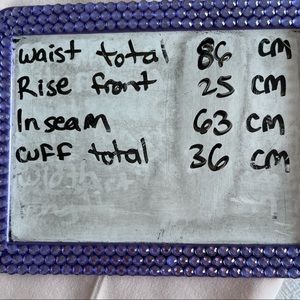 Waist total 86 cm
Rise front 25 cm
Inseam 63 cm
Cuff total 36 cm